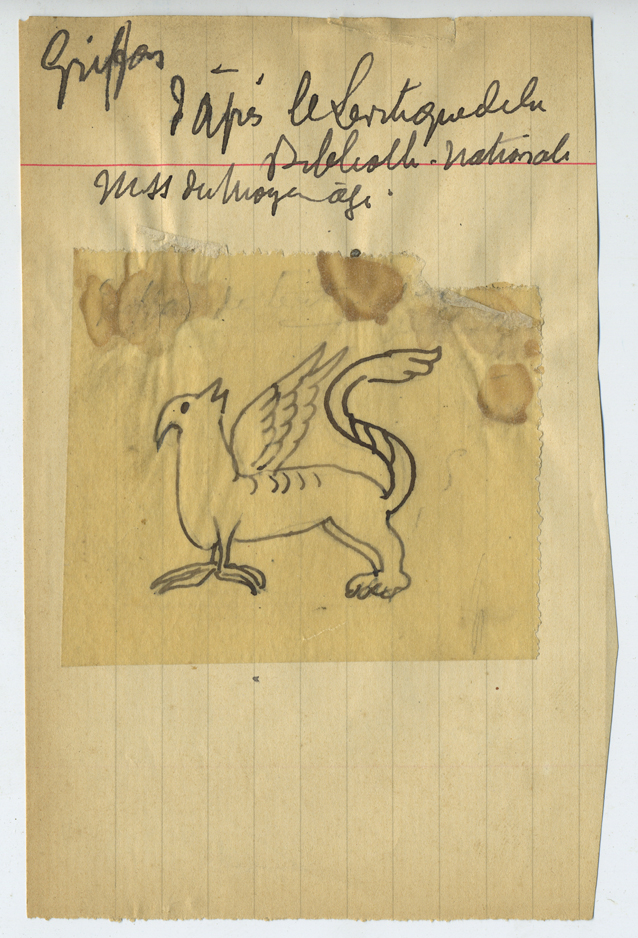 Griffon
d'après le Levitique de la
Biblioth. Nationale
Mss du Moyen âge.